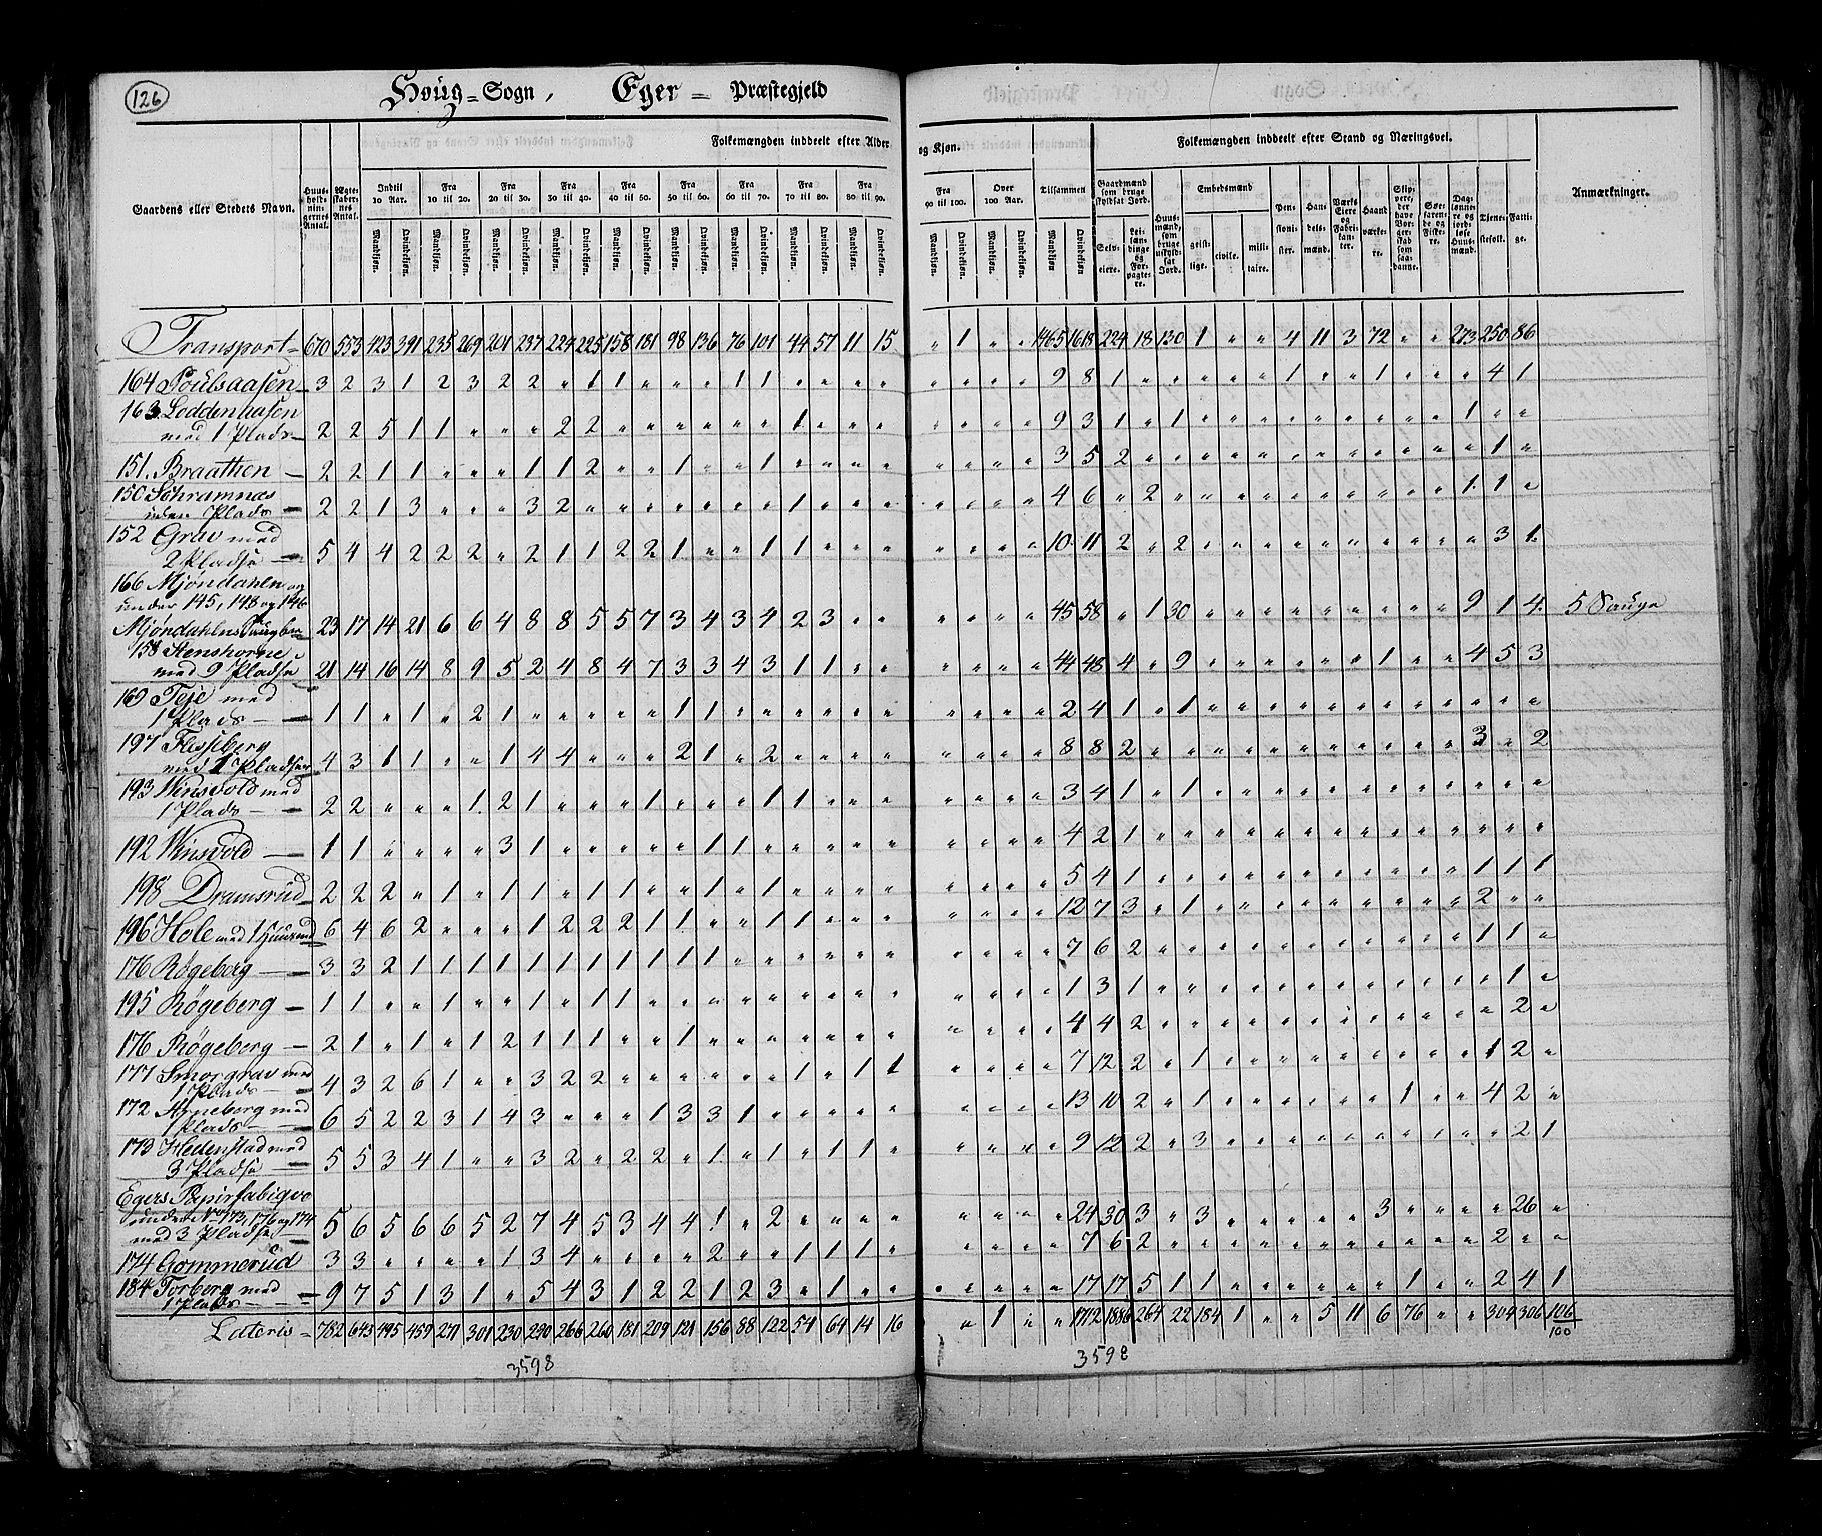 126
Houg = Sogn, Eger = Præstegjeld
Folkemængden inddeelt efter Alder og Kjøn.
Folkemængden inddeelt efter Stand og Næringsvei.
Gaardens eller Stedets Navn.
Anmærkninger.
Indtil 10 Aar.
Fra 10 til 20.
Fra 20 til 30.
Fra 30 til 40.
Fra 40 til 50.
Fra 50 til 60.
Fra 60 til 70.
Fra 70 til 80.
Fra 80 til 90.
Fra 90 til 100.
Over 100 Aar.
Tilsammen
Mandkjøn. Qvindekjøn.
Embedsmænd
geistlige. civile. militaire.
Pensionister. Handelsmænd. Værks Eiere og Fabrikanter. Haandværkere.
Tjenestefolk. Fattige.
Transport = 670 553 423 391 235 269 201 237 224 225 158 181 98 136 76 101 44 57 11 15 " 1 " " 1465 1618 224 18 130 1 " " 4 11 3 72 " " 273 250 86
164 Poulsaasen 3 2 3 1 2 3 2 2 " 1 1 " " " 1 1 " " " " " " " " 9 8 1 " " " " " 1 " " 1 " " " 4 1
163 Loddenhaasen
med 1 Plads 2 2 5 1 1 " " " 2 2 " " " " " " 1 " " " " " " " 9 3 1 " 1 " " " " " " " " " 1 " "
151. Braathen 2 2 1 1 " " " 1 1 2 " " 1 " " 1 " " " " " " " " 3 5 2 " " " " " " " " " " " " 1 "
150 Schramnæs
uden Plads 2 2 1 3 " " " 3 2 " " " " " " " 1 " " " " " " " 4 6 " 2 " " " " " " " " " " 1 1 "
152 Grav med
2 Pladse 5 4 4 2 2 2 " 2 1 1 2 2 1 " " 1 1 " " " " " " " 10 11 2 " 2 " " " " " " " " " " 3 1
166 Mjøndahlen og
under 145, 148 og 146
Mjøndahlens Saugbr 23 17 14 21 6 6 4 8 8 5 5 7 3 4 3 4 2 3 " " " " " " 45 58 " 1 30 " " " " " " " " " 9 1 4 5 Sauge
158 Stenshorne
med 9 Pladse 21 14 16 14 8 9 5 2 4 8 4 7 3 3 4 3 1 1 " " " " " " 44 48 4 " 9 " " " " " " 1 " " 4 5 3
169 Teje med
1 Plads 1 1 " 1 " 2 1 " " " " " 1 1 " " " " " " " " " " 2 4 1 " 1 " " " " " " " " " " " "
197 Flesseberg
med 1 Pladser 4 3 1 1 " " 1 4 4 " " " 2 1 " 2 " " " " " " " " 8 8 2 " " " " " " " " " " " 3 " 2
193 Winsvold med
1 Plads 2 2 " " " 1 2 1 " " " 1 " " " 1 1 " " " " " " " 3 4 1 " 1 " " " " " " " " " " " "
192 Winsvold 1 1 " " " " 3 1 " " " " " 1 1 " " " " " " " " " 4 2 1 " " " " " " " " " " " " " "
198 Dramsrud 2 2 2 " 1 " 1 1 1 " 1 1 " 1 " 1 " " " " " " " " 5 4 1 " " " " " " " " " " " 1 1 1
196 Hole med 1 Huusmd 6 4 6 2 " " " 1 2 2 2 1 1 " " 1 1 " " " " " " " 12 7 3 " 1 " " " " " " " " " 2 " "
176 Røgeberg 3 3 2 1 1 1 1 1 1 1 1 1 1 1 " " " " " " " " " " 7 6 2 " " " " " " " " " " " 1 1 "
195 Røgeberg 1 1 " " 1 " " 1 " 1 1 " " " " " " " " " " " " " 1 3 1 " " " " " " " " " " " " 1 "
176 Røgeberg 2 1 " 1 " 1 2 1 1 1 " " 1 " " " " " " " " " " " 4 4 2 " " " " " " " " " " " " 2 "
177 Smorgrav med
1 Plads 4 3 2 6 1 " " 3 2 2 " " " " " " 1 " 1 1 " " " " 7 12 2 " 1 " " " " " " " " " 1 2 "
172 Arneberg med
1 Plads 6 5 2 2 3 1 4 3 " " " 1 3 3 1 " " " " " " " " " 13 10 2 " 1 " " " " " " 1 " " 4 2 "
173 Hedenstad med
3 Pladse 5 5 3 4 1 " " 3 2 " 2 2 " 1 " 1 " 1 1 " " " " " 9 12 2 " 3 " " " " " " " " " " 2 1
Egers Papirfabrigve
under No 173, 176 og 174
med 3 Pladse 5 6 5 6 6 5 2 7 4 5 3 4 4 1 " 2 " " " " " " " " 24 30 3 " 3 " " " " " 3 " " " " 26 "
174 Gommerud 3 3 " " " " 1 3 4 " " " " 2 " " 1 1 1 " " " " " 7 6 2 " " " " " " " " " " " 2 " "
184 Torberg med
1 Plads 9 7 5 1 3 1 " 5 4 3 1 2 2 1 2 3 " 1 " " " " " " 17 17 5 1 1 " " " " " " 1 " " 2 4 1
Lateris = 782 643 495 459 271 301 230 290 266 260 181 209 121 156 88 122 54 64 14 16 " 1 " " 1712 1886 264 22 184 1 " " 5 11 6 76 " " 304 306 106
100
3598
3598